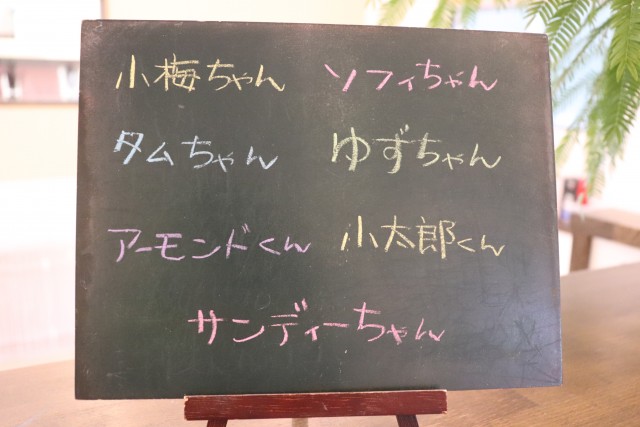 小梅ちゃん ソフィちゃん
タムちゃん ゆずちゃん
アーモンドくん 小太郎くん
サンディーちゃん